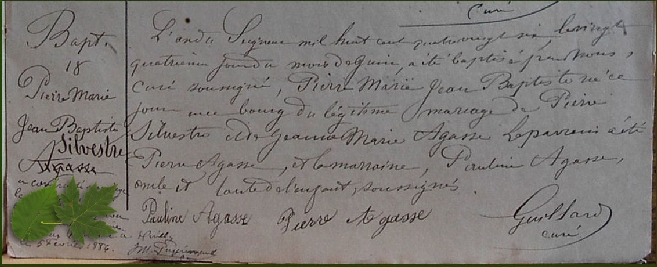 curé
Bapt.
18
Pierre Marie
Jean Baptiste
Silvestre
Agasse
L'an du Seigneur mil huit cent quatre vingt six, le vingt
quatrieme jour du mois de juin a été baptisé par Nous,
curé soussigné, Pierre Marie Jean Baptiste né ce
jour au bourg du légitime mariage de Pierre
Silvestre et de Jeanne Marie Agasse Le parrain a été
Pierre Agasse, et la marraine, Pauline Agasse,
oncle et tante de l'enfant, soussignés.
Pauline Agasse Pierre Agasse Guillard
curé